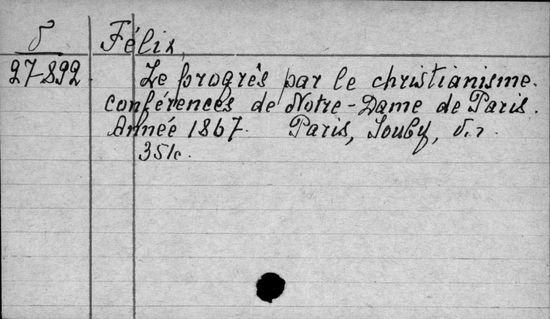 δ
27-892
Félix,
Le progrès par le christianisme.
conférences de Notre-Dame de Paris.
Année 1867. Paris, Jouby,
351c.